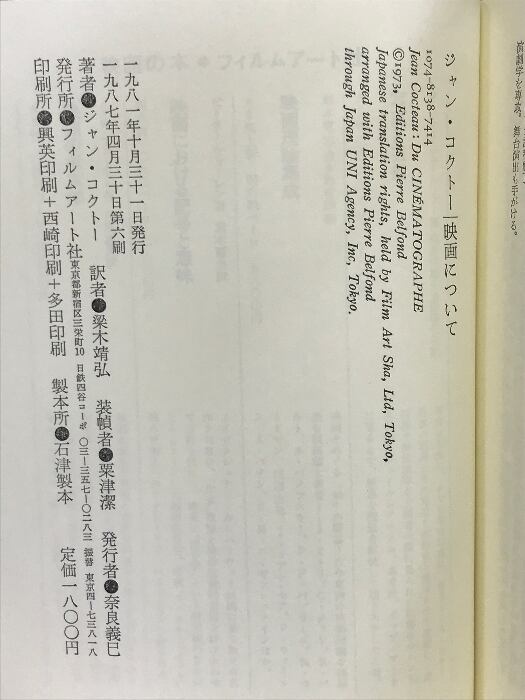 演劇学を専攻。舞台演出も手がける。
ジャン・コクトー│映画について
1074-8138-7414
Jean Cocteau: Du CINÉMATOGRAPHE
©1973, Editions Pierre Belfond
Japanese translation rights, held by Film Art Sha, Ltd, Tokyo,
arranged with Editions Pierre Belfond
through Japan UNI Agency, Inc, Tokyo.
一九八一年十月三十一日発行
一九八七年四月三十日第六刷
著者●ジャン・コクトー 訳者●梁木靖弘 装幀者●粟津潔 発行者●奈良義巳
発行所●フィルムアート社 東京都新宿区三栄町10 日鉄四谷コーポ 〇三―三五七―〇二八三 振替 東京四―七三八一八
印刷所●興英印刷+西崎印刷+多田印刷 製本所●石津製本 定価一八〇〇円